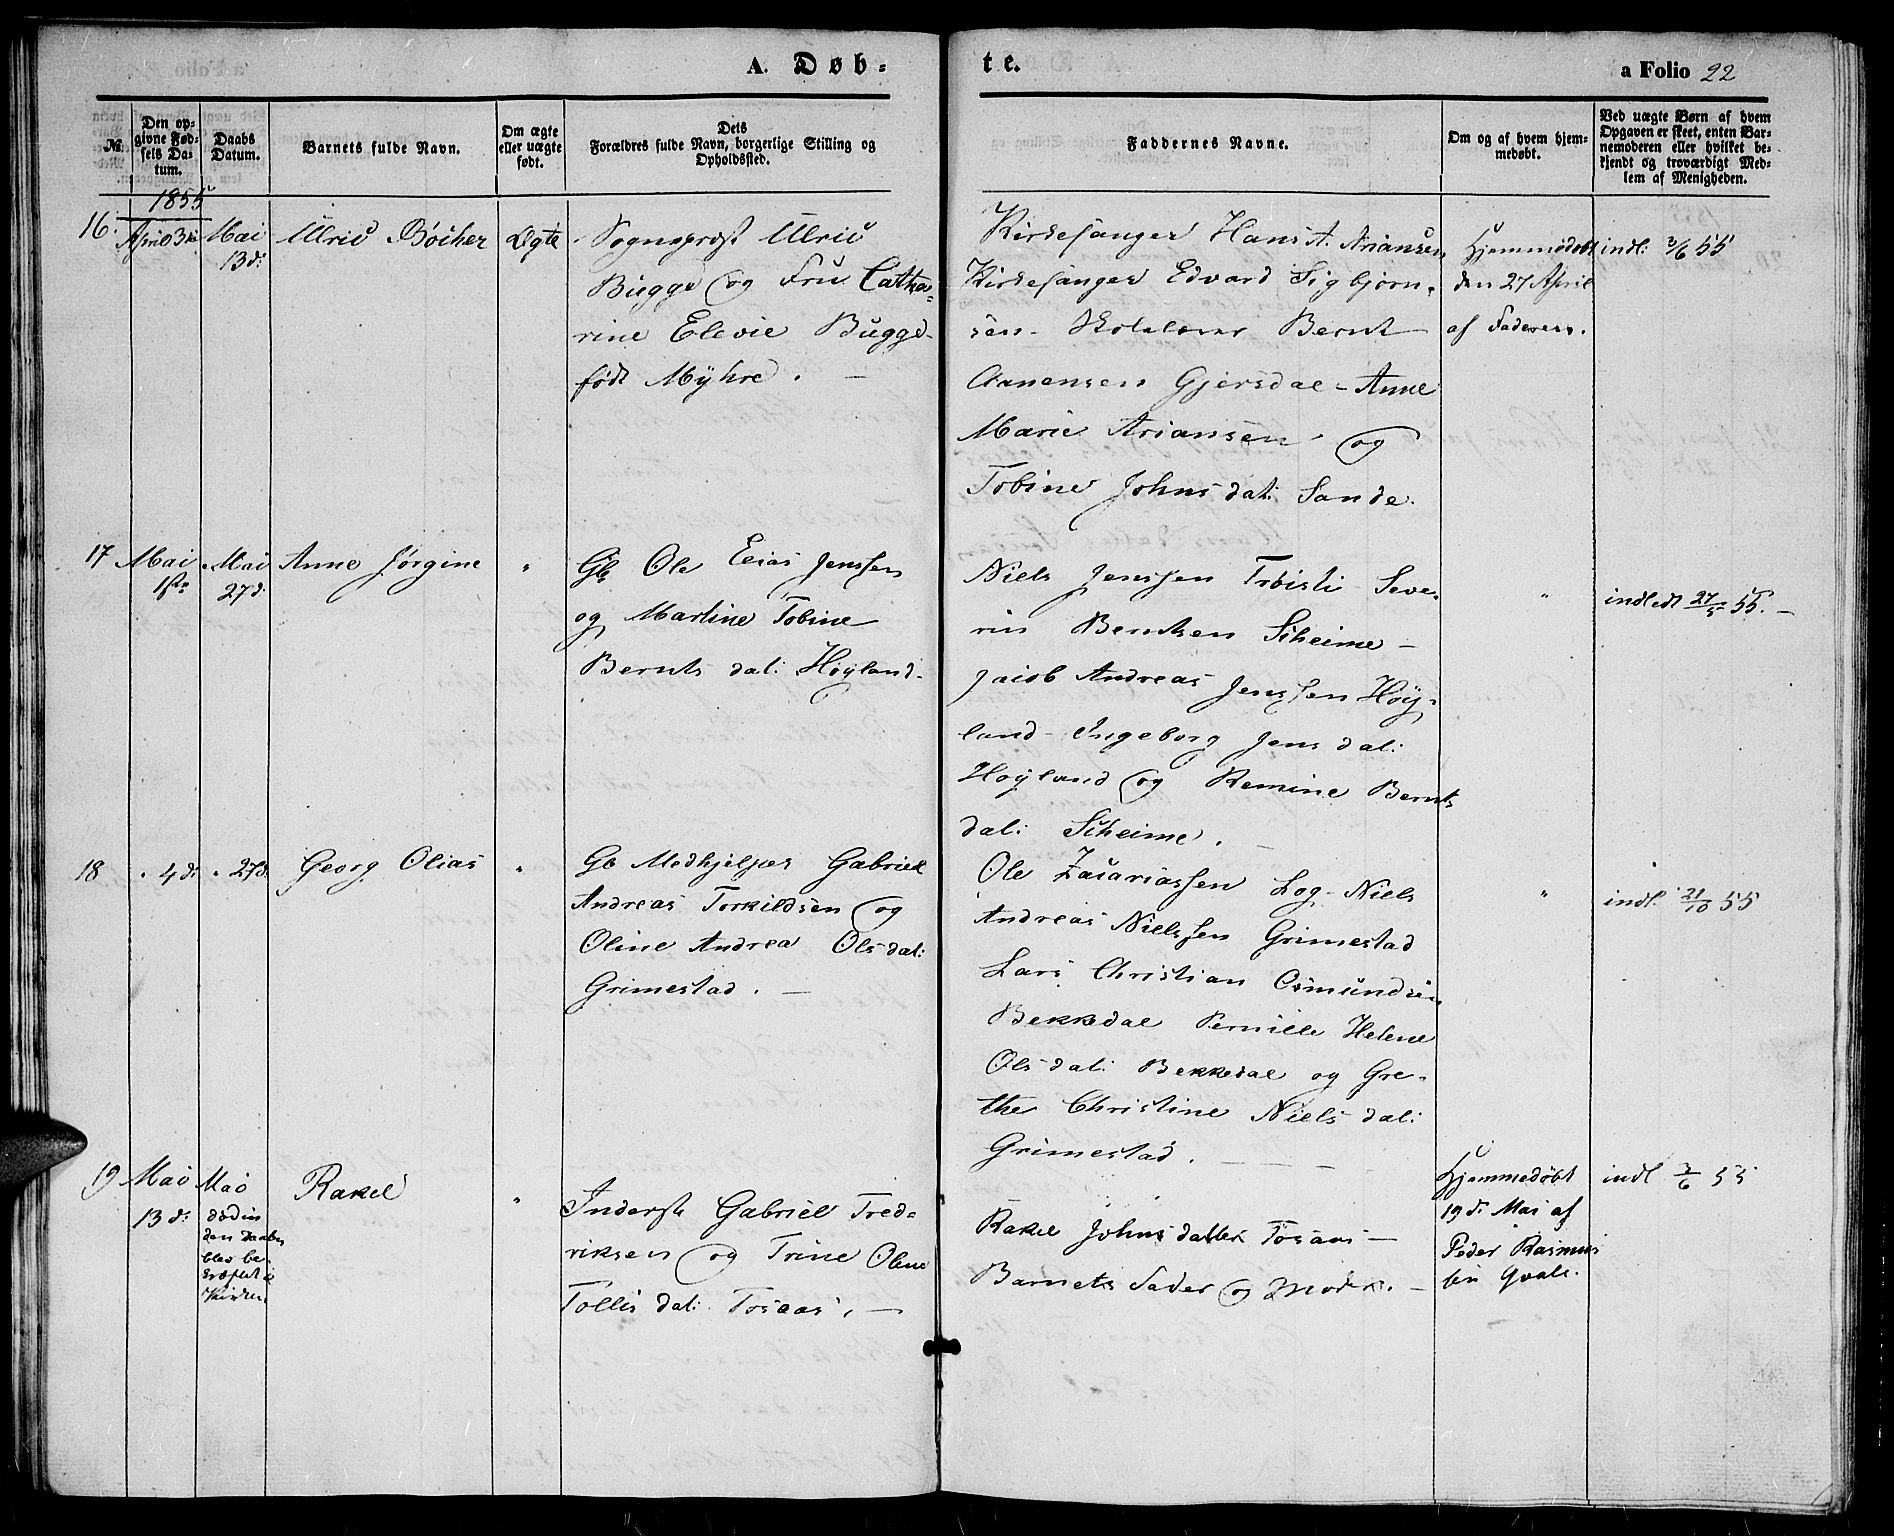 A. Døb-
te.
a Folio 22
№
Den op-
givne Fød-
sels Da-
tum.
Daabs
Datum.
Barnets fulde Navn.
Om ægte
eller uægte
født.
Dets
Forældres fulde Navn, borgerlige Stilling og
Opholdssted.
Faddernes Navne.
Om og af hvem hjem-
medøbt.
Ved uægte Børn af hvem
Opgaven er skeet, enten Bar-
nemoderen eller hvilket be-
kjendt og troværdigt Med-
lem af Menigheden.
1855
16.
April 3die
Mai
13d:
Ulric Bøcher
Ægte
Sognepræst Ulric
Bugge og Fru Catha-
rine Elevie Bugge
født Myhre. —
Kirkesanger Hans A. Ariansen
Kirkesanger Edvard Sigbjørn-
sen - Skolelærer Bernt
Aanensen Gjersdal - Anne
Marie Ariansen og
Tobine Johns dat: Sande.
Hjemmedøbt
den 27 April
af Faderen.
indl: 3/6 55
17
Mai
1ste
Mai
27d:
Anne Jørgine
"
Gb Ole Elias Jenssen
og Martine Tobine
Bernts dat: Høyland.
Niels Jenssen Trøisti - Seve-
rin Berntsen Scheime -
Jacob Andreas Jenssen Høy-
land - Ingeborg Jens dat:
Høyland og Remine Bernts
dat: Scheime. —
"
indledt 27/5 55. —
18
" 4d:
" 27d:
Georg Olias
"
Gb Medhjelper Gabriel
Andreas Torkildsen og
Oline Andrea Ols dat:
Grimestad. —
Ole Zacariassen Log - Niels
Andreas Nielssen Grimestad
Lars Christian Osmundsen
Bekkedal Pernille Helene
Ols dat: Bekkedal og Gre-
the Christine Niels dat:
Grimestad. —
"
indl: 21/10 55
19
Mai
13d:
Mai
den Daaben
blev be-
kræftet i
Kirken
Rakel
"
Inderst Gabriel Fred-
riksen og Trine Oline
Tollis dat: Tosaas. —
Rakel Johns datter Tosaas —
Barnets Fader og Moder. —
Hjemmedøbt
19d: Mai af
Peder Rasmus
sen Qvale.
indl 3/6 55